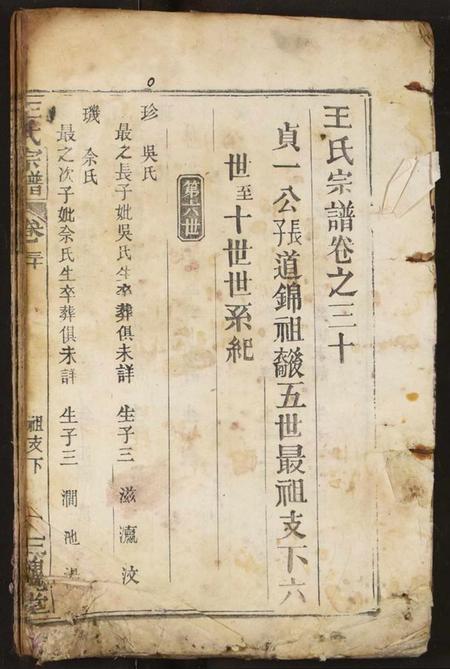 王氏宗譜卷之三十
貞一公張道錦祖裔五世最祖支下六
世至十世世系紀
第六世
珍 吳氏
最之長子妣吳氏生卒葬俱未詳 生子三 滋 瀛 汶
璣 佘氏
最之次子妣佘氏生卒葬俱未詳 生子三 澗 池
王氏宗譜 卷三十 祖支下 一 三槐堂